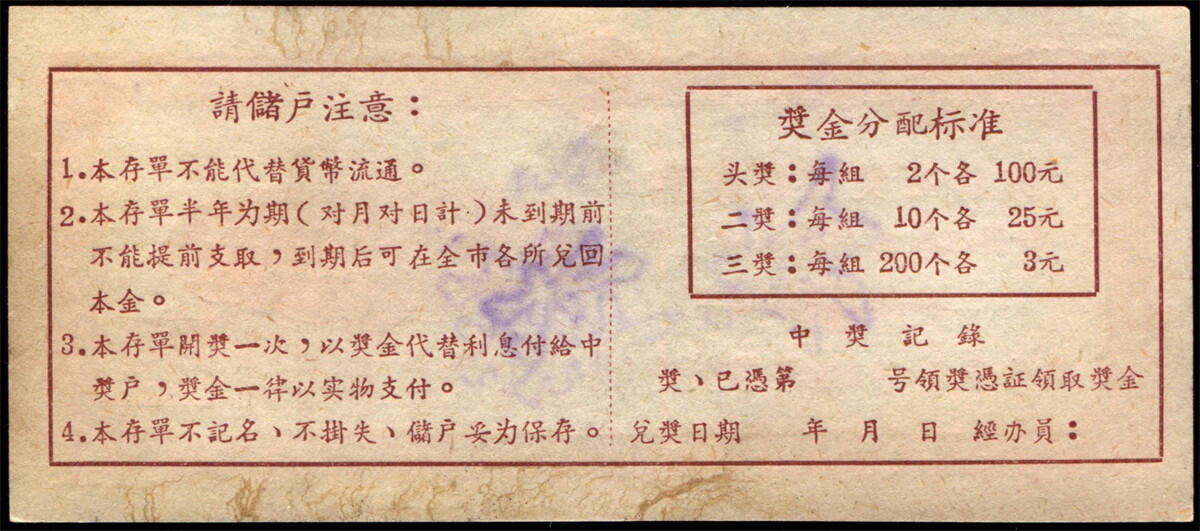 請儲户注意：
1.本存單不能代替貨幣流通。
2.本存單半年为期(对月对日計·)未到期前
不能提前支取，到期后可在全市各所兑回
本金。
3.本存單開獎一次，以獎金代替利息付給中
獎户，獎金一律以实物支付。
4.本存單不記名、不掛失、儲户妥为保存。
獎金分配标准
头獎：每組 2个各 100元
二獎：每組 10个各 25元
三獎：每組 200个各 3元
中獎記錄
獎、已憑第 号領獎憑証領取獎金
兑獎日期 年 月 日 經办員：